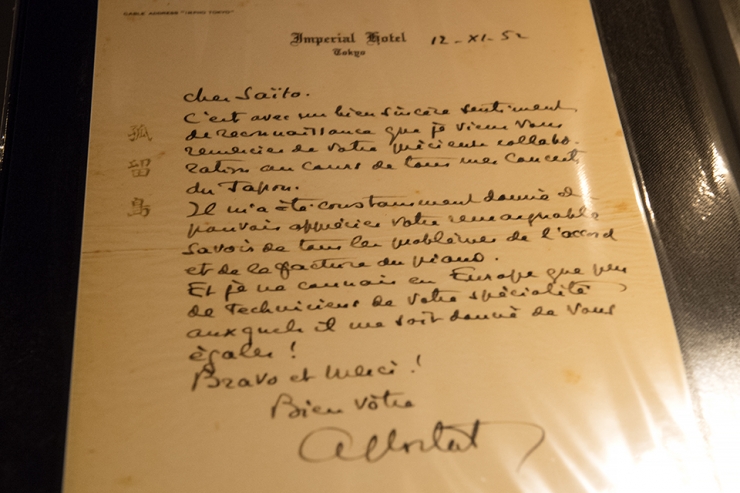 CABLE ADDRESS "IMPHO TOKYO"
Imperial Hotel
Tokyo
12-XI-52
cher Saïto.
C'est avec un bien sincère sentiment
de reconnaissance que je viens vous
remercier de votre précieuse collabo-
ration au cours de tous mes concerts
du Japon.
Il m'a été constamment donné de
pouvoir apprécier votre remarquable
savoir de tous les problèmes de l'accord
et de la facture du piano.
Et je ne connais en Europe que peu
de Techniciens de votre spécialité
auxquels il me soit donné de vous
égaler !
Bravo et merci !
Bien vôtre
A Cortot
孤
留
島